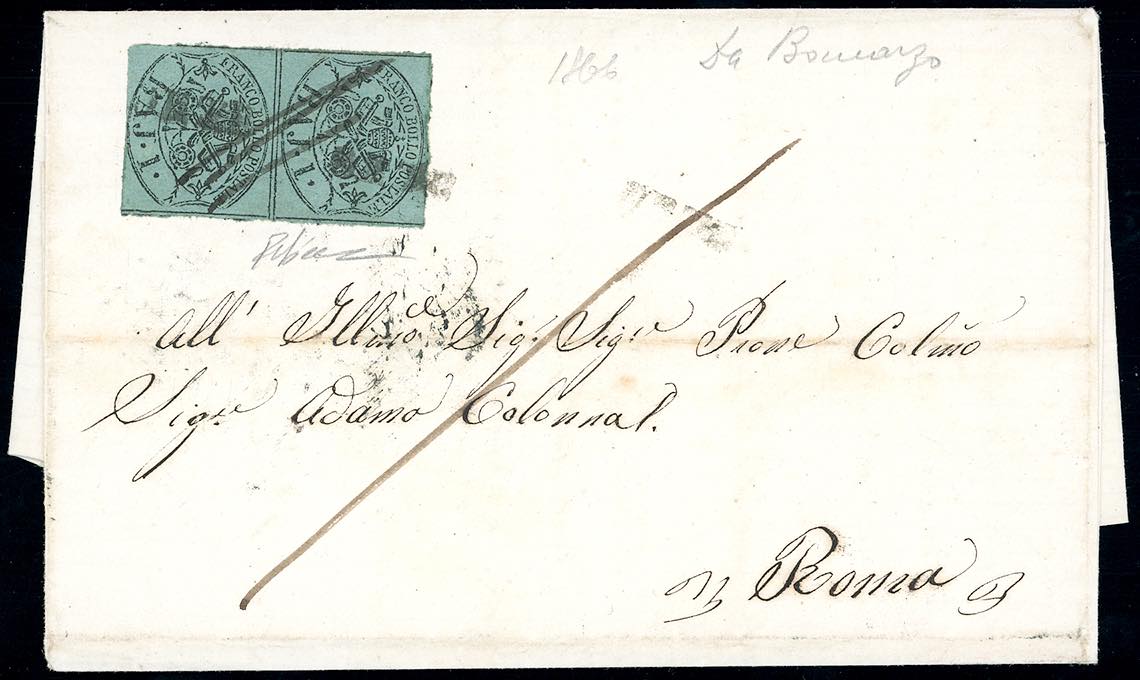 1866 Da Bomarzo
FRANCO BOLLO POSTALE BAJ. 1.
FRANCO BOLLO POSTALE BAJ 1.
All' Illmo. Sigr. Sigr. Prone Colmo
Sigr. Adamo Colonna
Roma